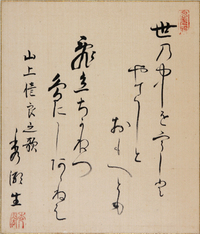 世乃中を宇しと
やさしと
おもへとも
飛立ちかねつ
鳥にしあらねは
山上憶良之歌